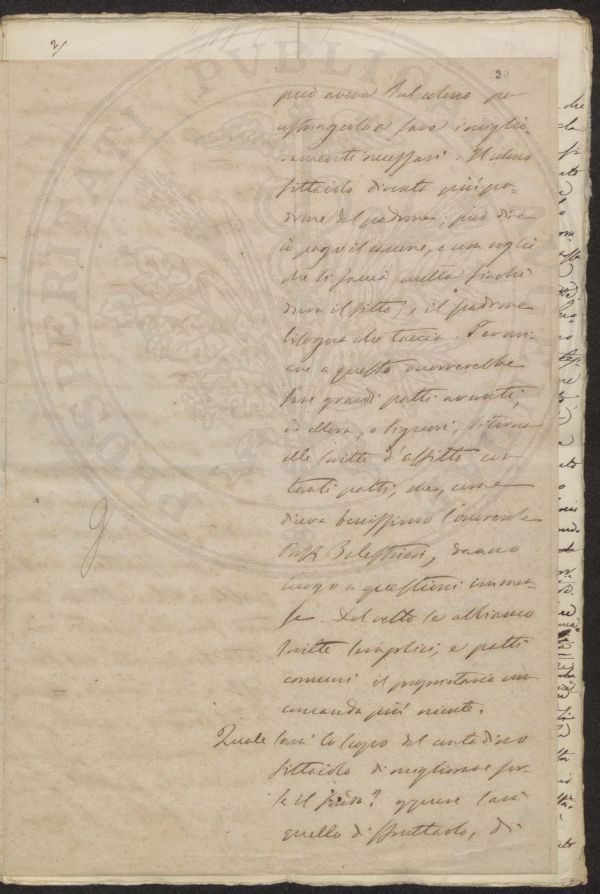 2/
20
PROSPERITATI PUBLICAE
può avere dal colono per
costringerlo a fare i miglio
ramenti necessari. Il colono
fittaiolo diventa più pa-
drone del padrone; può dire
io pago il canone, e non voglio
che si faccia nulla finché
dura il fitto, e il padrone
bisogna che taccia. Per ovvi-
are a questo occorrerebbe
fare grandi patti avanti,
ed allora, o Signori, si torna
alle scritte d'affitto con
tanti patti, che, come
diceva benissimo l'onorevole
Balestrieri, danno
luogo a questioni immen-
se. Del resto se abbiamo
scritte semplici, e patti
comuni il proprietario non
comanda più niente.
Quale sarà lo scopo del contadino
fittaiolo di migliorare for-
se il fondo? oppure sarà
quello di sfruttarlo, di-